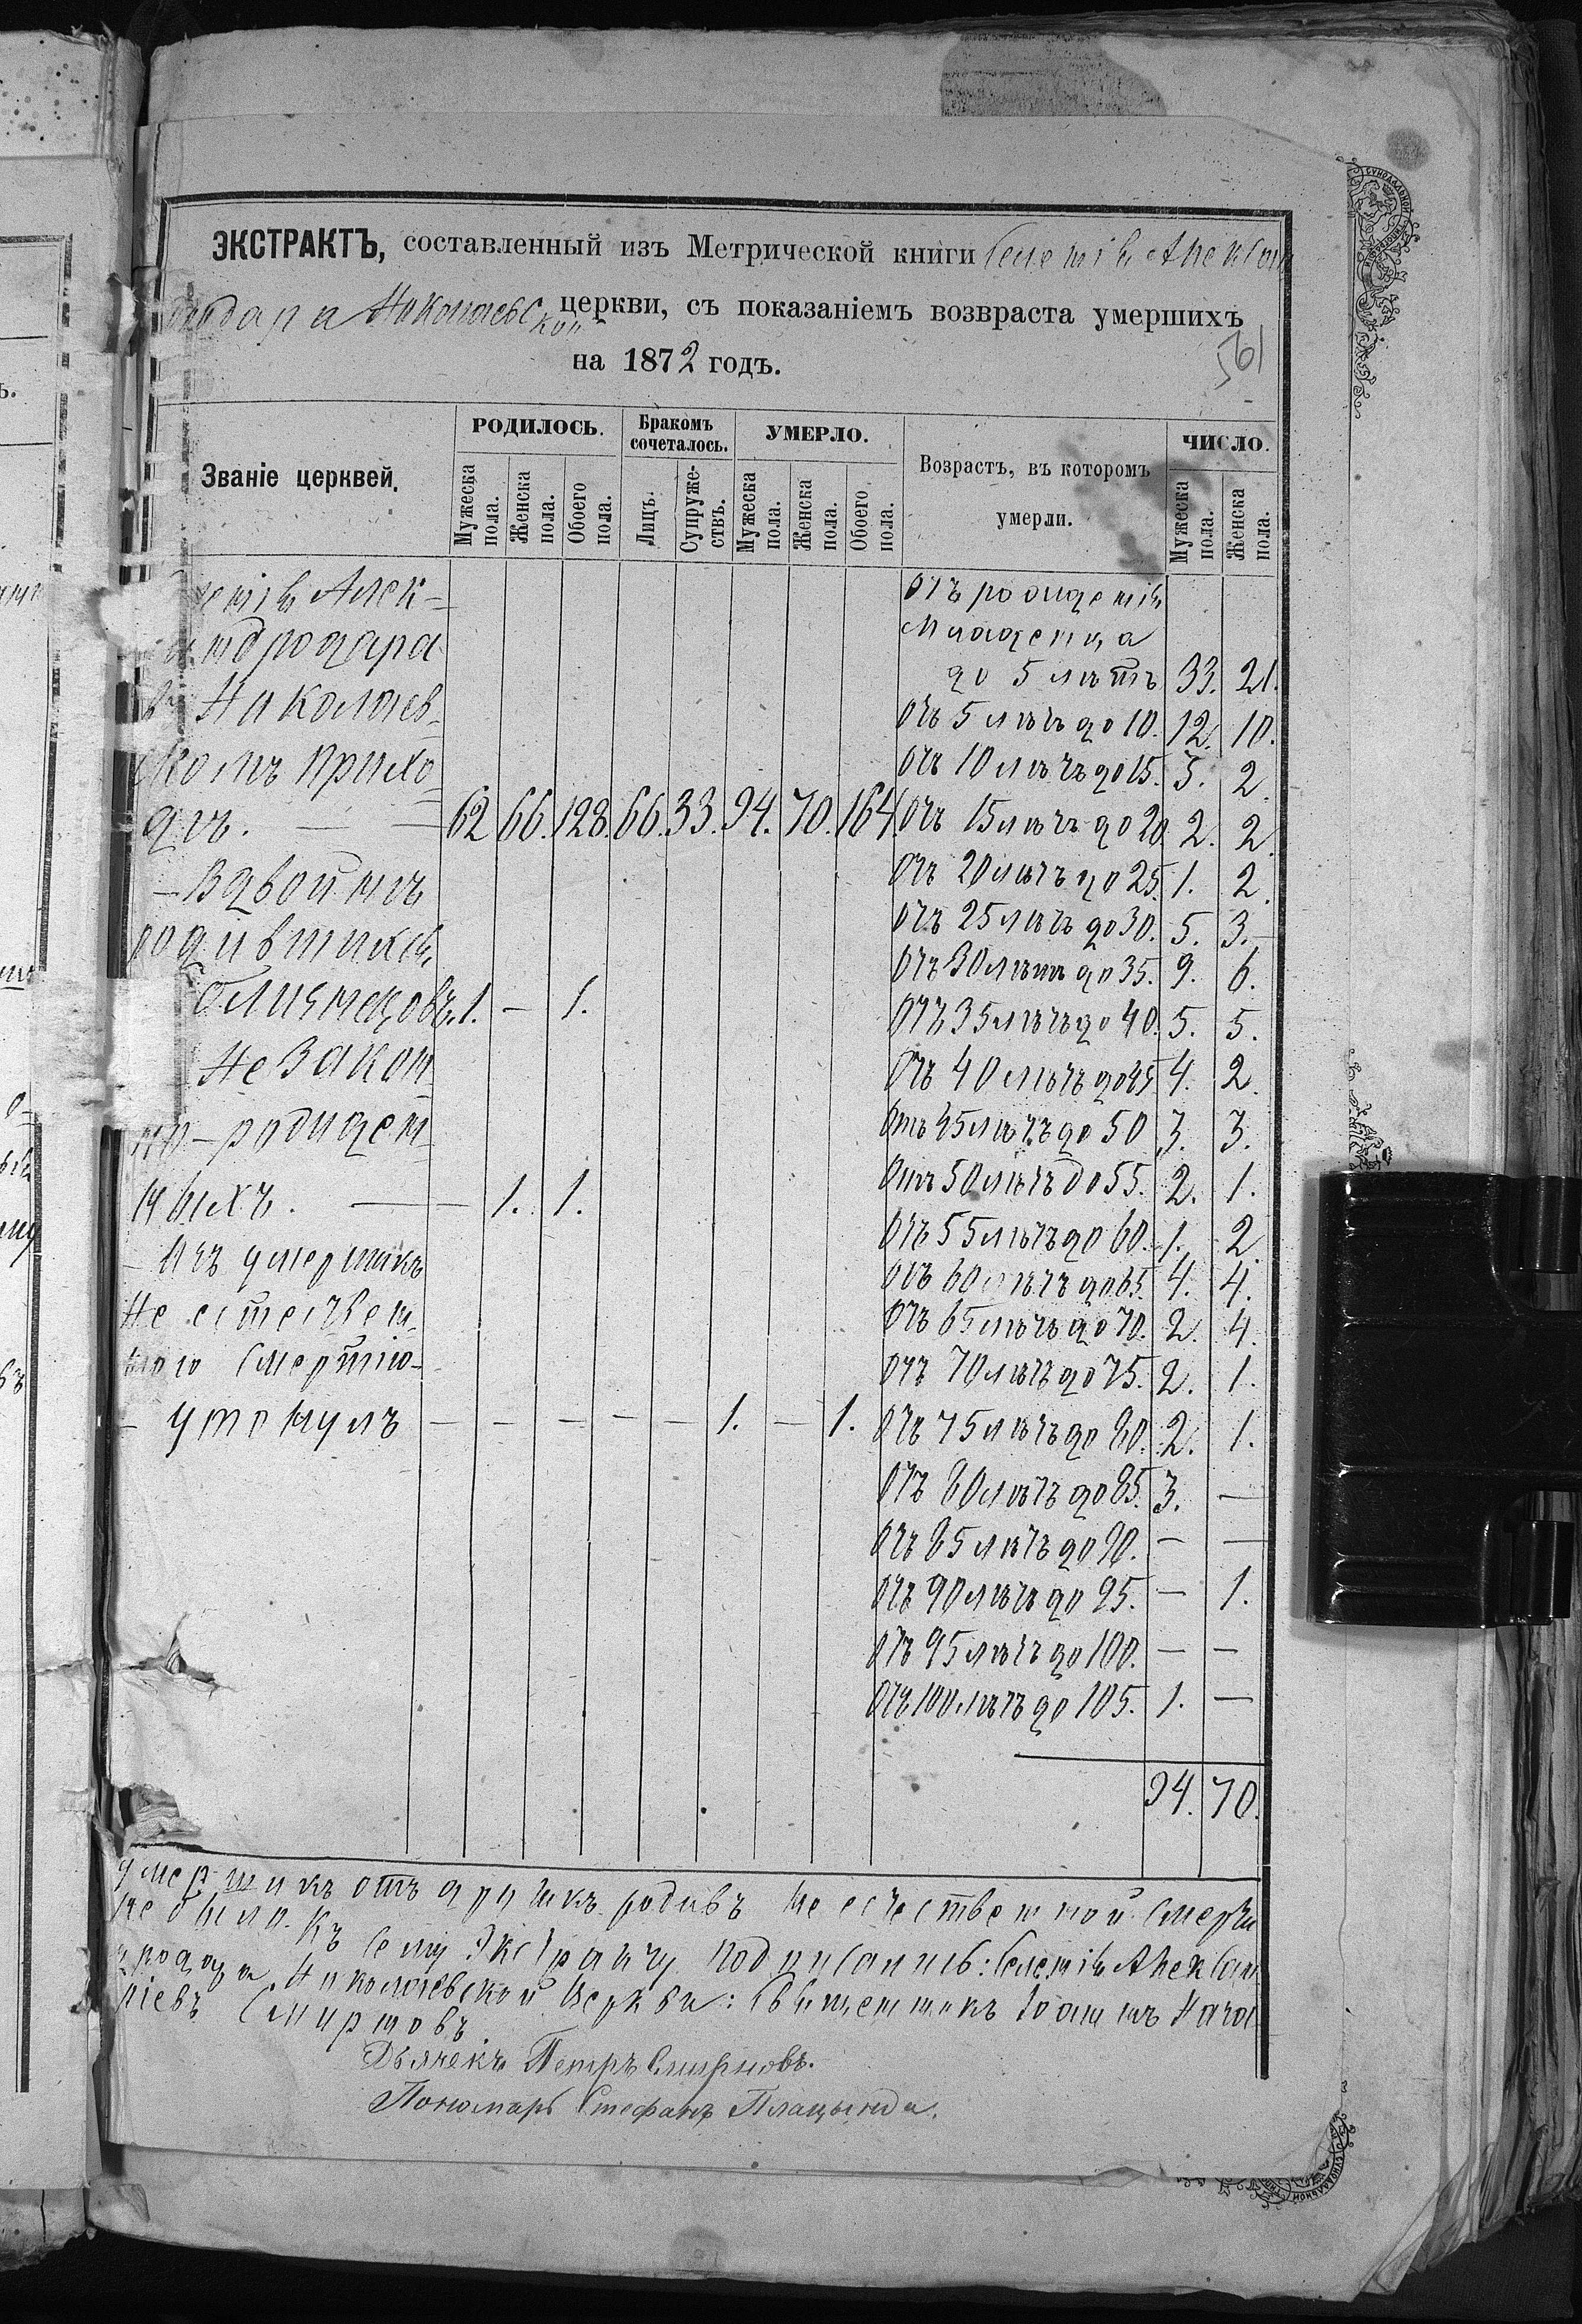 ЭКСТРАКТЪ, составленный изъ Метрической книги Селенія Алексан
дродара Николаевской церкви, съ показаніемъ возвраста умершихъ
на 1872 годъ.
561
Званіе церквей.
РОДИЛОСЬ.
Бракомъ сочеталось.
УМЕРЛО.
Возрастъ, въ которомъ умерли.
ЧИСЛО.
Мужеска пола.
Женска пола.
Обоего пола.
Лицъ.
Супружествъ.
Мужеска пола.
Женска пола.
Обоего пола.
Мужеска пола.
Женска пола.
ленія Алек-
андродара
въ Николаев-
скомъ прихо-
дѣ. — 62 66. 128. 66. 33. 94. 70. 164
- Вдвойнѣ
родившихся
близнецовъ. 1. — 1.
Незакон
но-рожден
ныхъ. — 1. 1.
- Изъ умершихъ
Не естествен
ною смертію-
- утонулъ — — — — — 1. — 1.
отъ рожденія
младенца
до 5 лѣтъ 33. 21.
отъ 5 лѣтъ до 10. 12. 10.
отъ 10 лѣтъ до 15. 3. 2.
отъ 15 лѣтъ до 20. 2. 2.
отъ 20 лѣтъ до 25. 1. 2.
отъ 25 лѣтъ до 30. 5. 3.
отъ 30 лѣтъ до 35. 9. 6.
отъ 35 лѣтъ до 40. 5. 5.
отъ 40 лѣтъ до 45 4. 2.
отъ 45 лѣтъ до 50 3. 3.
отъ 50 лѣтъ до 55. 2. 1.
отъ 55 лѣтъ до 60. 1. 2.
отъ 60 лѣтъ до 65. 4. 4.
отъ 65 лѣтъ до 70. 2. 4.
отъ 70 лѣтъ до 75. 2. 1.
отъ 75 лѣтъ до 80. 2. 1.
отъ 80 лѣтъ до 85. 3. —
отъ 85 лѣтъ до 90. — —
отъ 90 лѣтъ до 95. — 1.
отъ 95 лѣтъ до 100. — —
отъ 100 лѣтъ до 105. 1. —
94. 70.
умершихъ отъ другихъ родовъ не естественной смерти
не было. Къ сему Экстракту подписались: Селенія Алексан
дродара Николаевской Церкви: Священникъ Іоаннъ
Смирновъ
Дьячекъ Петръ Смирновъ.
Пономарь Стефанъ Плацында.